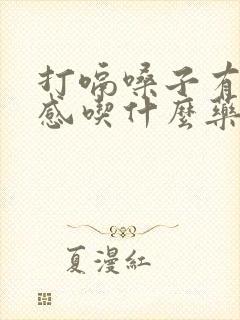 打嗝嗓子有
感喫什麼藥
夏漫紅